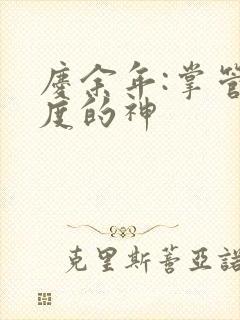 慶余年:掌管
度的神
克里斯蒂亞諾